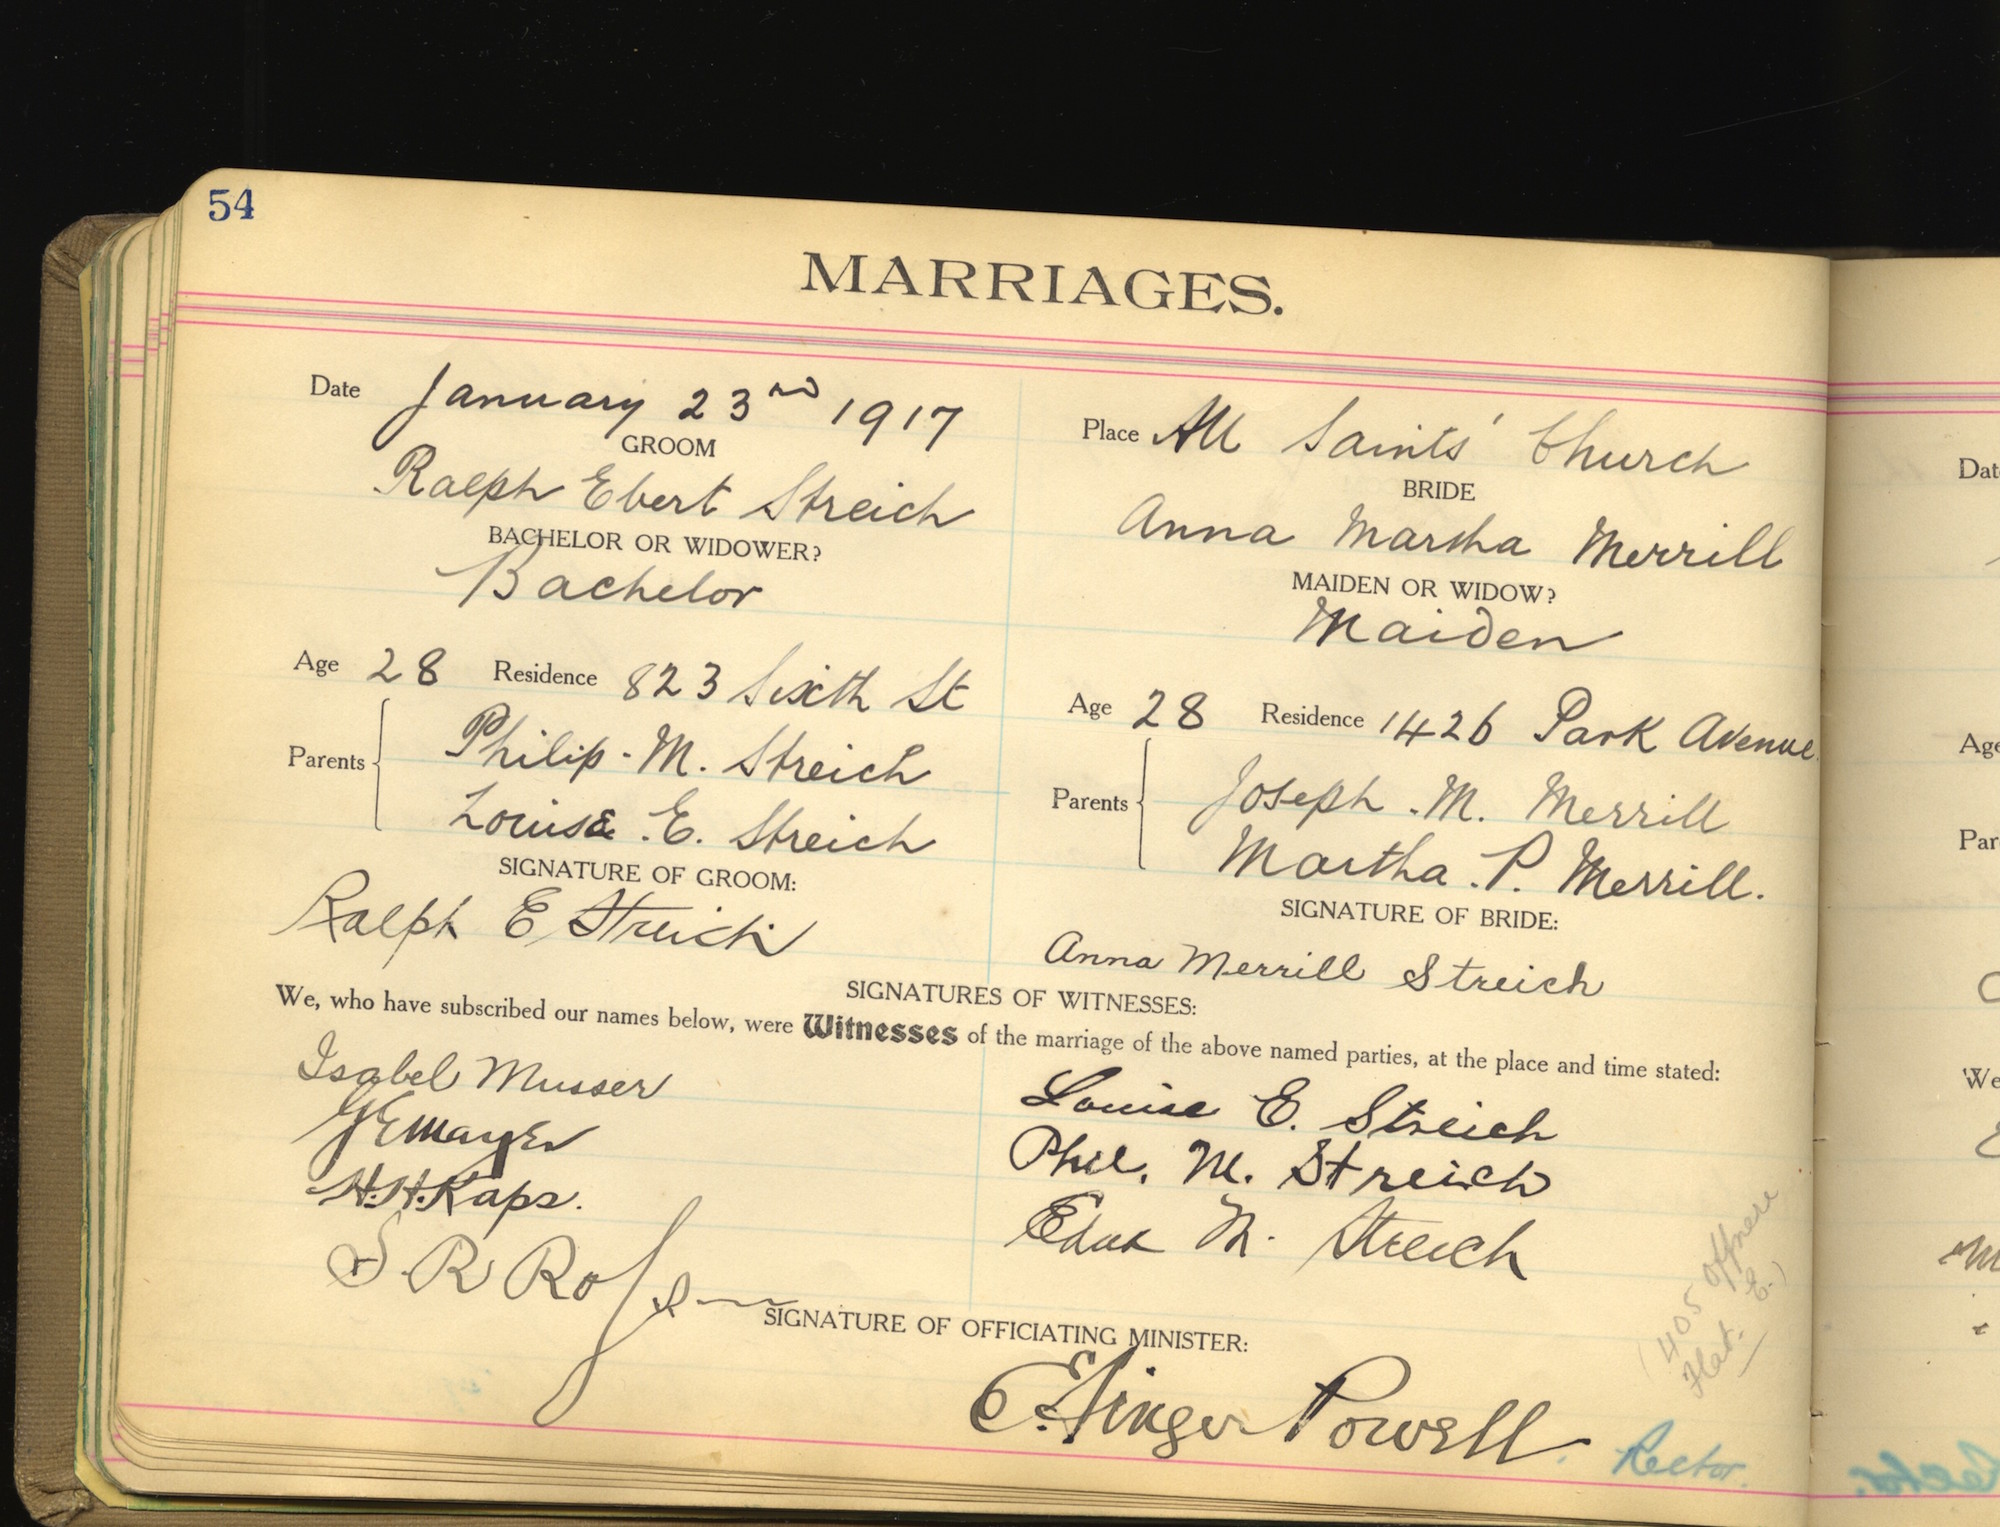 54
MARRIAGES.
Date January 23rd 1917
Place All Saints' Church
GROOM
Ralph Ebert Streich
BRIDE
Anna Martha Merrill
BACHELOR OR WIDOWER?
Bachelor
MAIDEN OR WIDOW?
Maiden
Age 28 Residence 823 Sixth St
Age 28 Residence 1426 Park Avenue
Parents Philip M. Streich
Louise E. Streich
Parents Joseph M. Merrill
Martha P. Merrill.
SIGNATURE OF GROOM:
Ralph E Streich
SIGNATURE OF BRIDE:
Anna Merrill Streich
SIGNATURES OF WITNESSES:
We, who have subscribed our names below, were Witnesses of the marriage of the above named parties, at the place and time stated:
Isabel Musser
H.H. Kaps.
S R
Louise E. Streich
Phil. M. Streich
M. Streich
(405 Offnere
Flat. E.)
SIGNATURE OF OFFICIATING MINISTER:
E. Ainger Powell.
Rector.
Dat
Age
Par
We